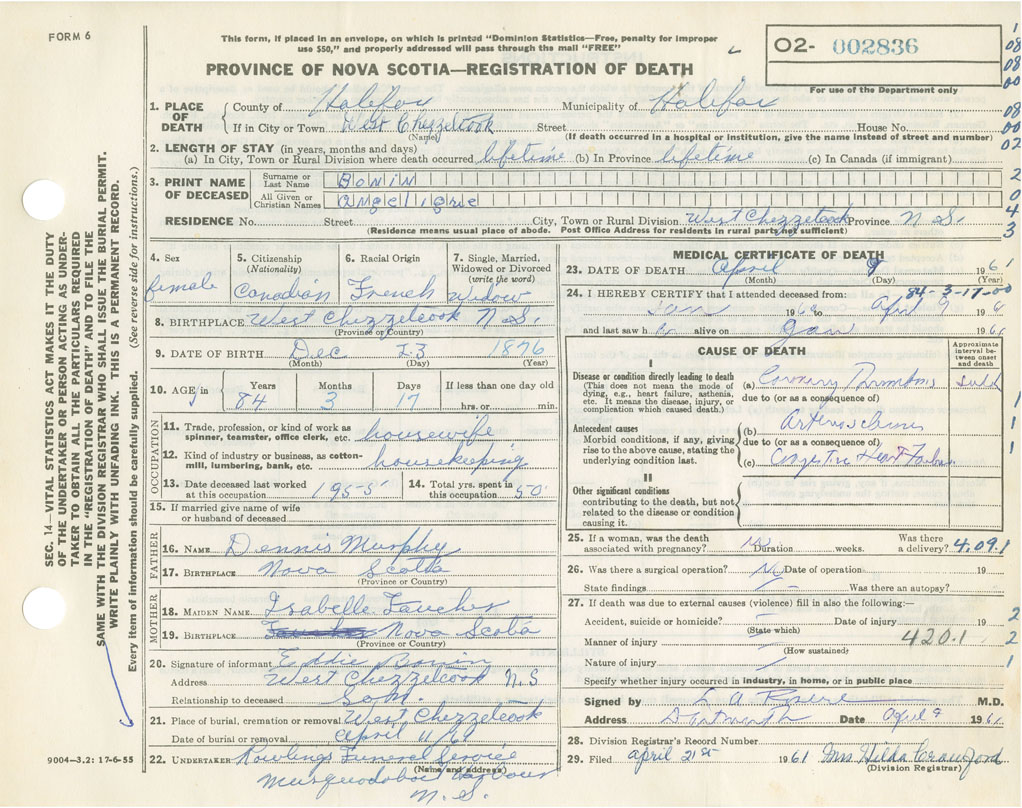 FORM 6
This form, if placed in an envelope, on which is printed "Dominion Statistics—Free, penalty for improper
use $50," and properly addressed will pass through the mail "FREE"
O2- 002836
For use of the Department only
PROVINCE OF NOVA SCOTIA—REGISTRATION OF DEATH
1. PLACE OF DEATH
County of Halifax Municipality of Halifax
If in City or Town West Chezzetcook Street House No.
(Name) (If death occurred in a hospital or institution, give the name instead of street and number)
2. LENGTH OF STAY (in years, months and days)
(a) In City, Town or Rural Division where death occurred lifetime (b) In Province lifetime (c) In Canada (if immigrant)
3. PRINT NAME OF DECEASED
Surname or Last Name Bonin
All Given or Christian Names
RESIDENCE No. Street City, Town or Rural Division West Chezzetcook Province N.S.
(Residence means usual place of abode. Post Office Address for residents in rural parts not sufficient)
4. Sex female
5. Citizenship (Nationality) Canadian
6. Racial Origin French
7. Single, Married, Widowed or Divorced (write the word) Widow
8. BIRTHPLACE West Chezzetcook N.S.
(Province or Country)
9. DATE OF BIRTH Dec 23 1876
(Month) (Day) (Year)
10. AGE Years 84 Months 3 Days 17 If less than one day old hrs. or min.
OCCUPATION
11. Trade, profession, or kind of work as spinner, teamster, office clerk, etc. housewife
12. Kind of industry or business, as cotton-mill, lumbering, bank, etc. housekeeping
13. Date deceased last worked at this occupation 1955
14. Total yrs. spent in this occupation 50
15. If married give name of wife or husband of deceased
FATHER
16. NAME Dennis Murphy
17. BIRTHPLACE Nova Scotia
(Province or Country)
MOTHER
18. MAIDEN NAME Isabelle Faucher
19. BIRTHPLACE Nova Scotia
(Province or Country)
20. Signature of informant Eddie Bonin
Address West Chezzetcook N.S
Relationship to deceased Son
21. Place of burial, cremation or removal West Chezzetcook
Date of burial or removal April 11/61
22. UNDERTAKER Rowlings Funeral Service
(Name and address)
Musquodoboit Harbour
N.S.
MEDICAL CERTIFICATE OF DEATH
23. DATE OF DEATH April 9 1961
(Month) (Day) (Year)
84-3-17-00
24. I HEREBY CERTIFY that I attended deceased from:
Jan 1960 to April 9 1961
and last saw h alive on Jan 1961
CAUSE OF DEATH
Approximate interval between onset and death
I
Disease or condition directly leading to death
(This does not mean the mode of dying, e.g., heart failure, asthenia, etc. It means the disease, injury, or complication which caused death.)
(a) Coronary Thrombosis
due to (or as a consequence of)
Antecedent causes
Morbid conditions, if any, giving rise to the above cause, stating the underlying condition last.
(b) Arteriosclerosis
due to (or as a consequence of)
(c) Congestive Heart Failure
II
Other significant conditions
contributing to the death, but not related to the disease or condition causing it.
25. If a woman, was the death associated with pregnancy? No Duration weeks. Was there a delivery? 4.09.1
26. Was there a surgical operation? No Date of operation 19
State findings Was there an autopsy?
27. If death was due to external causes (violence) fill in also the following:—
Accident, suicide or homicide? Date of injury 19
(State which)
Manner of injury 420.1
(How sustained)
Nature of injury
Specify whether injury occurred in industry, in home, or in public place
Signed by M.D.
Address Dartmouth Date April 9 1961
28. Division Registrar's Record Number
29. Filed April 21st 1961 Mrs Hilda Crawford
(Division Registrar)
SEC. 14—VITAL STATISTICS ACT MAKES IT THE DUTY
OF THE UNDERTAKER OR PERSON ACTING AS UNDER-
TAKER TO OBTAIN ALL THE PARTICULARS REQUIRED
IN THE "REGISTRATION OF DEATH" AND TO FILE THE
SAME WITH THE DIVISION REGISTRAR WHO SHALL ISSUE THE BURIAL PERMIT.
WRITE PLAINLY WITH UNFADING INK. THIS IS A PERMANENT RECORD.
Every item of information should be carefully supplied. (See reverse side for instructions.)
9004—3.2: 17-6-55
1
08
08
00
08
00
02
2
0
4
3
1
1
1
2
2
1